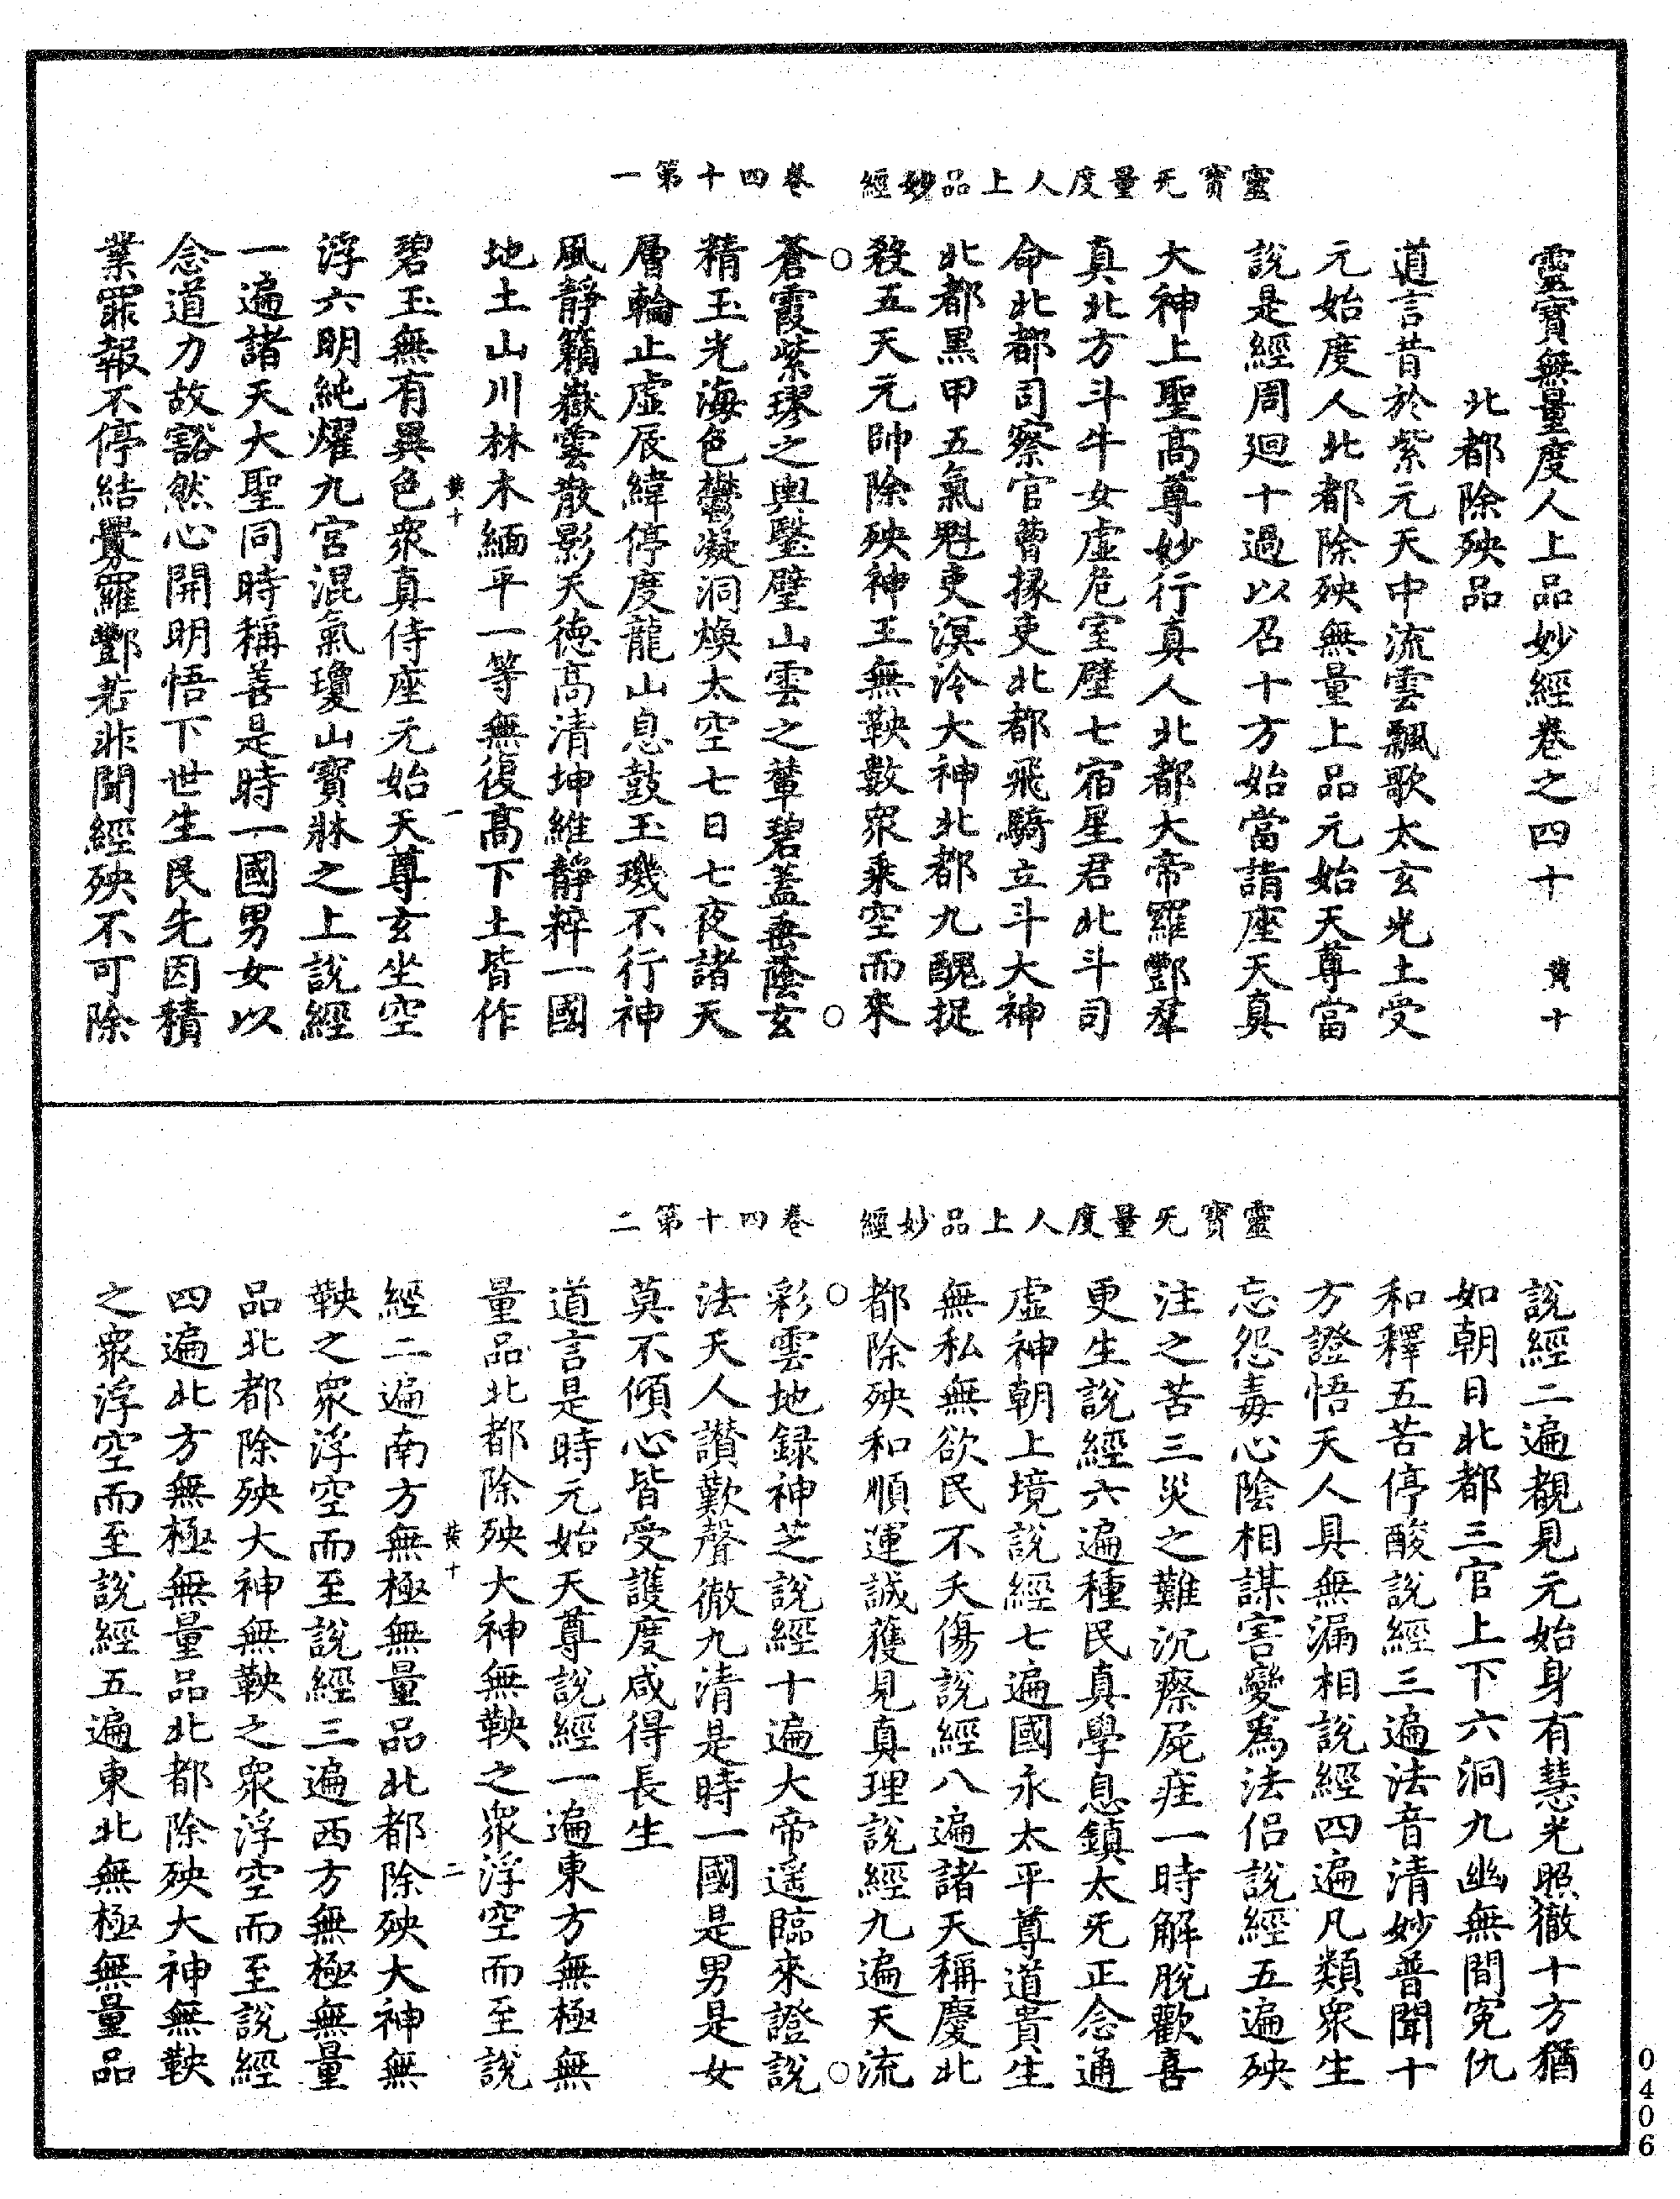 靈寶无量度人上品妙經　卷四十第一
靈寶無量度人上品妙經卷之四十　黃十
北都除殃品
道言昔於紫元天中流雲飄歌太玄光土受
元始度人北都除殃無量上品元始天尊當
說是經周廻十過以召十方始當詣座天真
大神上聖高尊妙行真人北都大帝羅酆羣
真北方斗牛女虛危室壁七宿星君北斗司
命北都司察官曹掾吏北都飛騎立斗大神
北都黑甲五氣魁吏溟泠大神北都九醜捉
殺五天元帥除殃神王無鞅數衆乘空而來
蒼霞紫璆之輿壂壁山雲之輦碧蓋垂蔭玄
精玉光海色鬱凝洞煥太空七日七夜諸天
層輪止虛辰緯停度龍山息鼓玉璣不行神
風靜籟嶽雲散影天德高清坤維靜粹一國
地土山川林木緬平一等無復高下土皆作
黃十　一
碧玉無有異色衆真侍座元始天尊玄坐空
浮六明純燿九宮混氣瓊山寶牀之上說經
一遍諸天大聖同時稱善是時一國男女以
念道力故豁然心開明悟下世生民先因積
業罪報不停結釁羅酆若非聞經殃不可除
靈寶无量度人上品妙經　卷四十第二
說經二遍覩見元始身有慧光照徹十方猶
如朝日北都三官上下六洞九幽無間冤仇
和釋五苦停酸說經三遍法音清妙普聞十
方證悟天人具無漏相說經四遍凡類衆生
忘怨毒心陰相謀害變為法侣說經五遍殃
注之苦三災之難沉瘵屍疰一時解脫歡喜
更生說經六遍種民真學息鎮太无正念通
虛神朝上境說經七遍國永太平尊道貴生
無私無欲民不夭傷說經八遍諸天稱慶北
都除殃和順運誠獲見真理說經九遍天流
彩雲地録神芝說經十遍大帝遥臨來證說
法天人讚歎聲徹九清是時一國是男是女
莫不傾心皆受護度咸得長生
道言是時元始天尊說經一遍東方無極無
量品北都除殃大神無鞅之衆浮空而至說
黃十　二
經二遍南方無極無量品北都除殃大神無
鞅之衆浮空而至說經三遍西方無極無量
品北都除殃大神無鞅之衆浮空而至說經
四遍北方無極無量品北都除殃大神無鞅
之衆浮空而至說經五遍東北無極無量品
0406